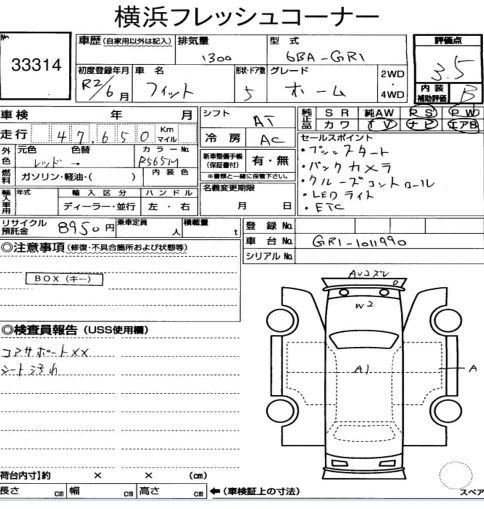 横浜フレッシュコーナー
No
33314
車歴 (自家用以外は記入)
排気量
1300
型式
6BA-GR1
評価点
3.5
内装
補助評価
B
初度登録年月
R2/6月
車名
フィット
形状・ドア数
5
グレード
ホーム
2WD
4WD
車検 年 月
シフト
AT
純正品
SR 純AW PS PW
カワ TV ナビ エアB
走行 47,650 Km マイル
冷房
AC
外色
元色 色替 カラーNo.
レッド → R565M
燃料
ガソリン・軽油・( )
内装色
新車整備手帳
(保証書付)
有・無
※書類と一緒に保管下さい。
セールスポイント
・プッシュスタート
・バックカメラ
・クルーズコントロール
・LEDライト
・ETC
輸入車用
年式 輸入区分 ハンドル
ディーラー・並行 左・右
名義変更期限
月 日
リサイクル
預託金
8950円
乗車定員 人
積載量 t
登録No.
車台No.
GR1-1011990
シリアルNo.
◎注意事項 (修復・不具合箇所および状態等)
BOX (キー)
◎検査員報告 (USS使用欄)
コアサポートXX
シート汚れ
W2
A1
A
荷台内寸)約 × × (cm)
長さ cm 幅 cm 高さ cm
←(車検証上の寸法)
スペア